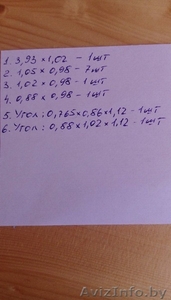 1. 3,93 x 1,02 - 1шт
2. 1,05 x 0,98 - 7шт
3. 1,02 x 0,98 - 1шт
4. 0,88 x 0,98 - 1шт
5. Угол: 0,765x0,86x1,12 - 1шт
6. Угол: 0,88x1,02x1,12 - 1шт
AvizInfo.by